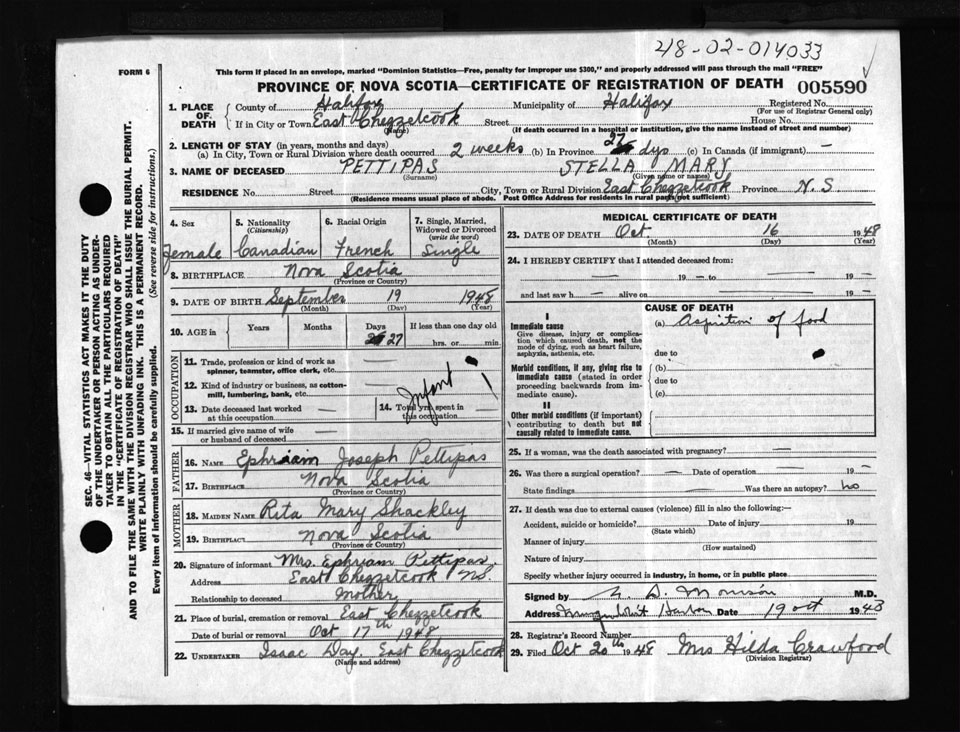 218-02-014033
FORM 6
This form if placed in an envelope, marked "Dominion Statistics—Free, penalty for improper use $300," and properly addressed will pass through the mail "FREE"
PROVINCE OF NOVA SCOTIA—CERTIFICATE OF REGISTRATION OF DEATH 005590
1. PLACE OF DEATH County of Halifax Municipality of Halifax Registered No.
(For use of Registrar General only)
If in City or Town East Chezzetcook Street House No.
(Name) (If death occurred in a hospital or institution, give the name instead of street and number)
2. LENGTH OF STAY (in years, months and days)
(a) In City, Town or Rural Division where death occurred 2 weeks (b) In Province 27 dys (c) In Canada (if immigrant) —
3. NAME OF DECEASED PETTIPAS STELLA MARY
(Surname) (Given name or names)
RESIDENCE No. Street City, Town or Rural Division East Chezzetcook Province N.S
(Residence means usual place of abode. Post Office Address for residents in rural parts not sufficient)
SEC. 46—VITAL STATISTICS ACT MAKES IT THE DUTY
OF THE UNDERTAKER OR PERSON ACTING AS UNDER-
TAKER TO OBTAIN ALL THE PARTICULARS REQUIRED
IN THE "CERTIFICATE OF REGISTRATION OF DEATH"
AND TO FILE THE SAME WITH THE DIVISION REGISTRAR WHO SHALL ISSUE THE BURIAL PERMIT.
WRITE PLAINLY WITH UNFADING INK. THIS IS A PERMANENT RECORD.
Every item of information should be carefully supplied. (See reverse side for instructions.)
4. Sex 5. Nationality (Citizenship) 6. Racial Origin 7. Single, Married, Widowed or Divorced (write the word)
Female Canadian French Single
8. BIRTHPLACE Nova Scotia
(Province or Country)
9. DATE OF BIRTH September 19 1948
(Month) (Day) (Year)
10. AGE in Years Months Days If less than one day old
27 hrs. or min.
OCCUPATION
11. Trade, profession or kind of work as
spinner, teamster, office clerk, etc.
12. Kind of industry or business, as cotton-
mill, lumbering, bank, etc.
Infant
13. Date deceased last worked
at this occupation — 14. Total yrs. spent in
this occupation
15. If married give name of wife
or husband of deceased —
FATHER
16. NAME Ephriam Joseph Pettipas
17. BIRTHPLACE Nova Scotia
(Province or Country)
MOTHER
18. MAIDEN NAME Rita Mary Shackley
19. BIRTHPLACE Nova Scotia
(Province or Country)
20. Signature of informant Mrs. Ephriam Pettipas
Address East Chezzetcook NS.
Relationship to deceased Mother
21. Place of burial, cremation or removal East Chezzetcook
Date of burial or removal Oct 17th 1948
22. UNDERTAKER Isaac Day. East Chezzetcook
(Name and address)
MEDICAL CERTIFICATE OF DEATH
23. DATE OF DEATH Oct. 16 1948
(Month) (Day) (Year)
24. I HEREBY CERTIFY that I attended deceased from:
— 19 — to — 19 —
and last saw h — alive on — 19 —
CAUSE OF DEATH
I
Immediate cause
Give disease, injury or complica-
tion which caused death, not the
mode of dying, such as heart failure,
asphyxia, asthenia, etc.
(a) Aspiration of food
due to
Morbid conditions, if any, giving rise to
immediate cause (stated in order
proceeding backwards from im-
mediate cause).
(b)
due to
(c)
II
Other morbid conditions (if important)
contributing to death but not
causally related to immediate cause.
25. If a woman, was the death associated with pregnancy? —
26. Was there a surgical operation? — Date of operation — 19 —
State findings — Was there an autopsy? no
27. If death was due to external causes (violence) fill in also the following:—
Accident, suicide or homicide? Date of injury 19
(State which)
Manner of injury
(How sustained)
Nature of injury
Specify whether injury occurred in industry, in home, or in public place
Signed by D. Morrison M.D.
Address Harbour Date 19 Oct 1948
28. Registrar's Record Number
29. Filed Oct 20th 1948 Mrs Hilda Crawford
(Division Registrar)